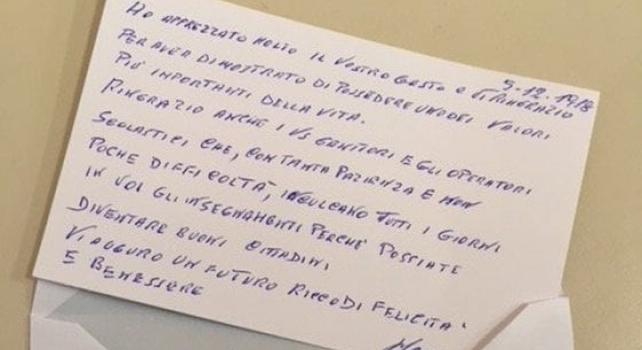 5.12.1918
HO APPREZZATO MOLTO IL VOSTRO GESTO E VI RINGRAZIO
PER AVER DIMOSTRATO DI POSSEDERE UNO DEI VALORI
PIÙ IMPORTANTI DELLA VITA.
RINGRAZIO ANCHE I VS GENITORI E GLI OPERATORI
SCOLASTICI CHE, CON TANTA PAZIENZA E NON
POCHE DIFFICOLTÀ, INCULCANO TUTTI I GIORNI
IN VOI GLI INSEGNAMENTI PERCHÈ POSSIATE
DIVENTARE BUONI CITTADINI
VI AUGURO UN FUTURO RICCO DI FELICITÀ
E BENESSERE